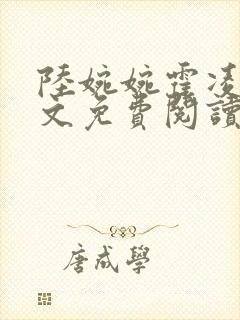 陸婉婉霍凌
文免費閱讀
唐成學